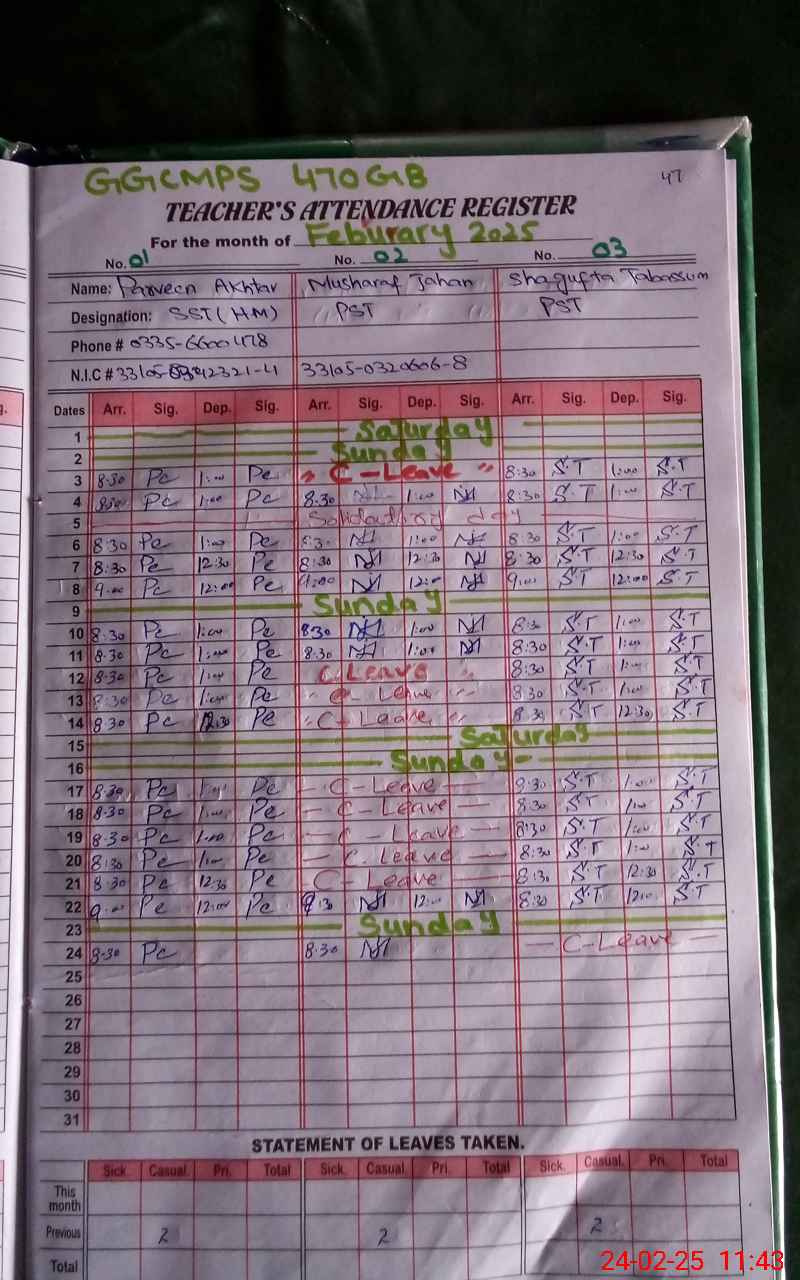 GGCMPS 470GB
47
TEACHER'S ATTENDANCE REGISTER
For the month of Feburary 2025
No. 01 No. 02 No. 03
Name: Parveen Akhtar Musharaf Jahan Shagufta Tabassum
Designation: SST (HM) PST PST
Phone # 0335-6600478
N.I.C # 33105-0320606-8
Dates Arr. Sig. Dep. Sig. Arr. Sig. Dep. Sig. Arr. Sig. Dep. Sig.
1 Saturday
2 Sunday
3 8:30 Pc 1:00 Pc " C-Leave " 8:30 S.T 1:00 S.T
4 Pc 1:00 Pc 8:30 1:00 8:30 S.T 1:00 S.T
5 day
6 8:30 Pc 1:00 Pc 8:30 1:00 8:30 S.T 1:00 S.T
7 8:30 Pc 12:30 Pc 8:30 12:30 8:30 S.T 12:30 S.T
8 9:00 Pc 12:00 Pc 9:00 12:00 9:00 S.T 12:00 S.T
9 Sunday
10 8:30 Pc 1:00 Pc 8:30 1:00 8:30 S.T 1:00 S.T
11 8:30 Pc 1:00 Pc 8:30 1:00 8:30 S.T 1:00 S.T
12 8:30 Pc 1:00 Pc C Leave " 8:30 S.T 1:00 S.T
13 8:30 Pc 1:00 Pc " C- Leave " 8:30 S.T 1:00 S.T
14 8:30 Pc 12:30 Pc " C- Leave " 8:30 S.T 12:30 S.T
15 Saturday
16 Sunday
17 8:30 Pc 1:00 Pc - C-Leave - 8:30 S.T 1:00 S.T
18 8:30 Pc 1:00 Pc - C- Leave - 8:30 S.T 1:00 S.T
19 8:30 Pc 1:00 Pc - C- Leave - 8:30 S.T 1:00 S.T
20 8:30 Pc 1:00 Pc - C. Leave - 8:30 S.T 1:00 S.T
21 8:30 Pc 12:30 Pc C- Leave - 8:30 S.T 12:30 S.T
22 9:00 Pc 12:00 Pc 12:00 8:30 S.T 12:00 S.T
23 Sunday
24 8:30 Pc 8:30 - C-Leave -
25
26
27
28
29
30
31
STATEMENT OF LEAVES TAKEN.
Sick. Casual. Pri. Total Sick. Casual. Pri. Total Sick. Casual. Pri. Total
This month
Previous 2 2 2
Total
24-02-25 11:43